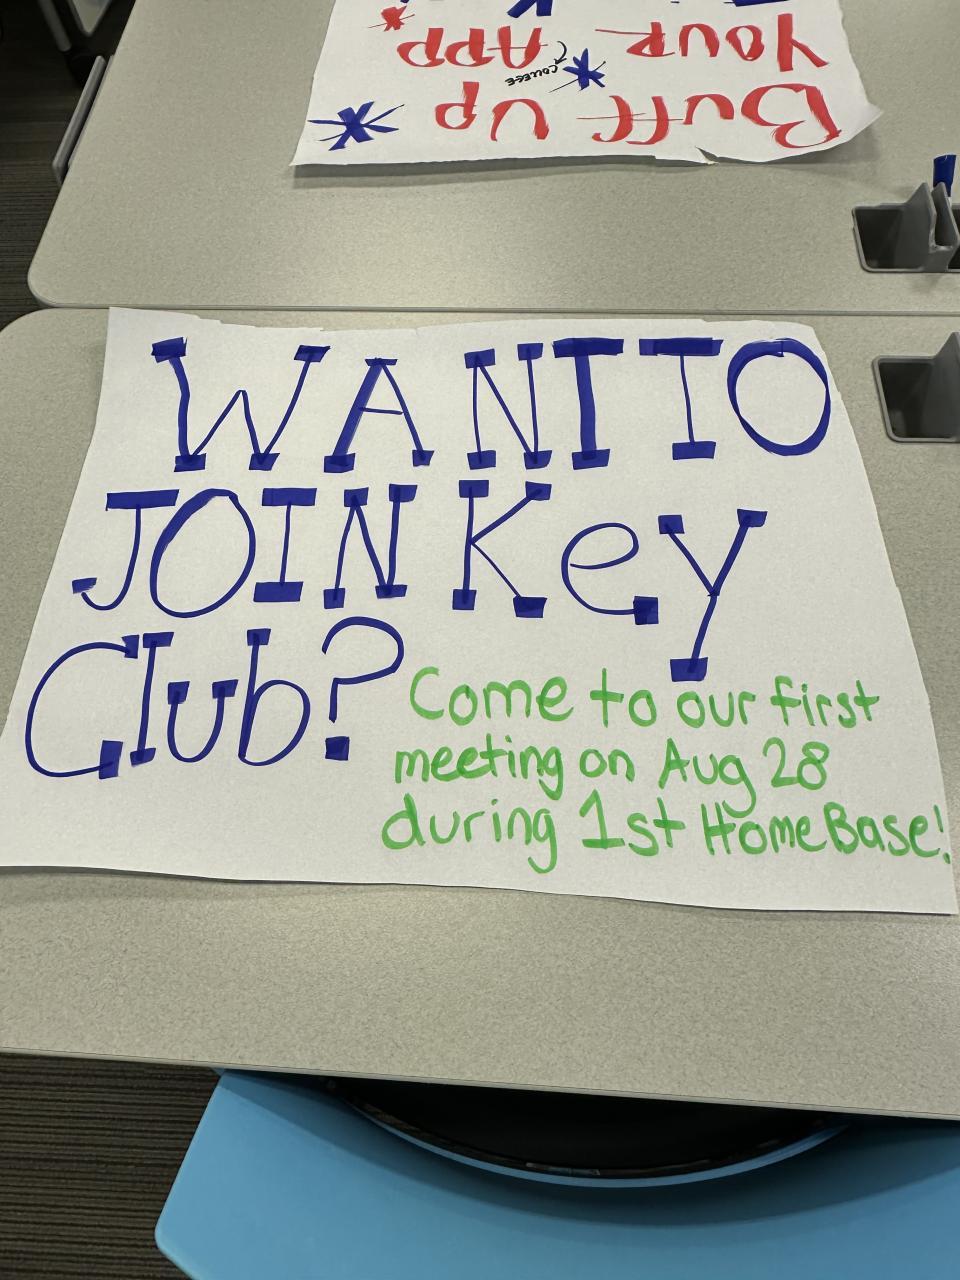 Buff Up
COLLEGE
YOUR APP
WANT TO
JOIN Key
Club?
Come to our first
meeting on Aug 28
during 1st HomeBase!